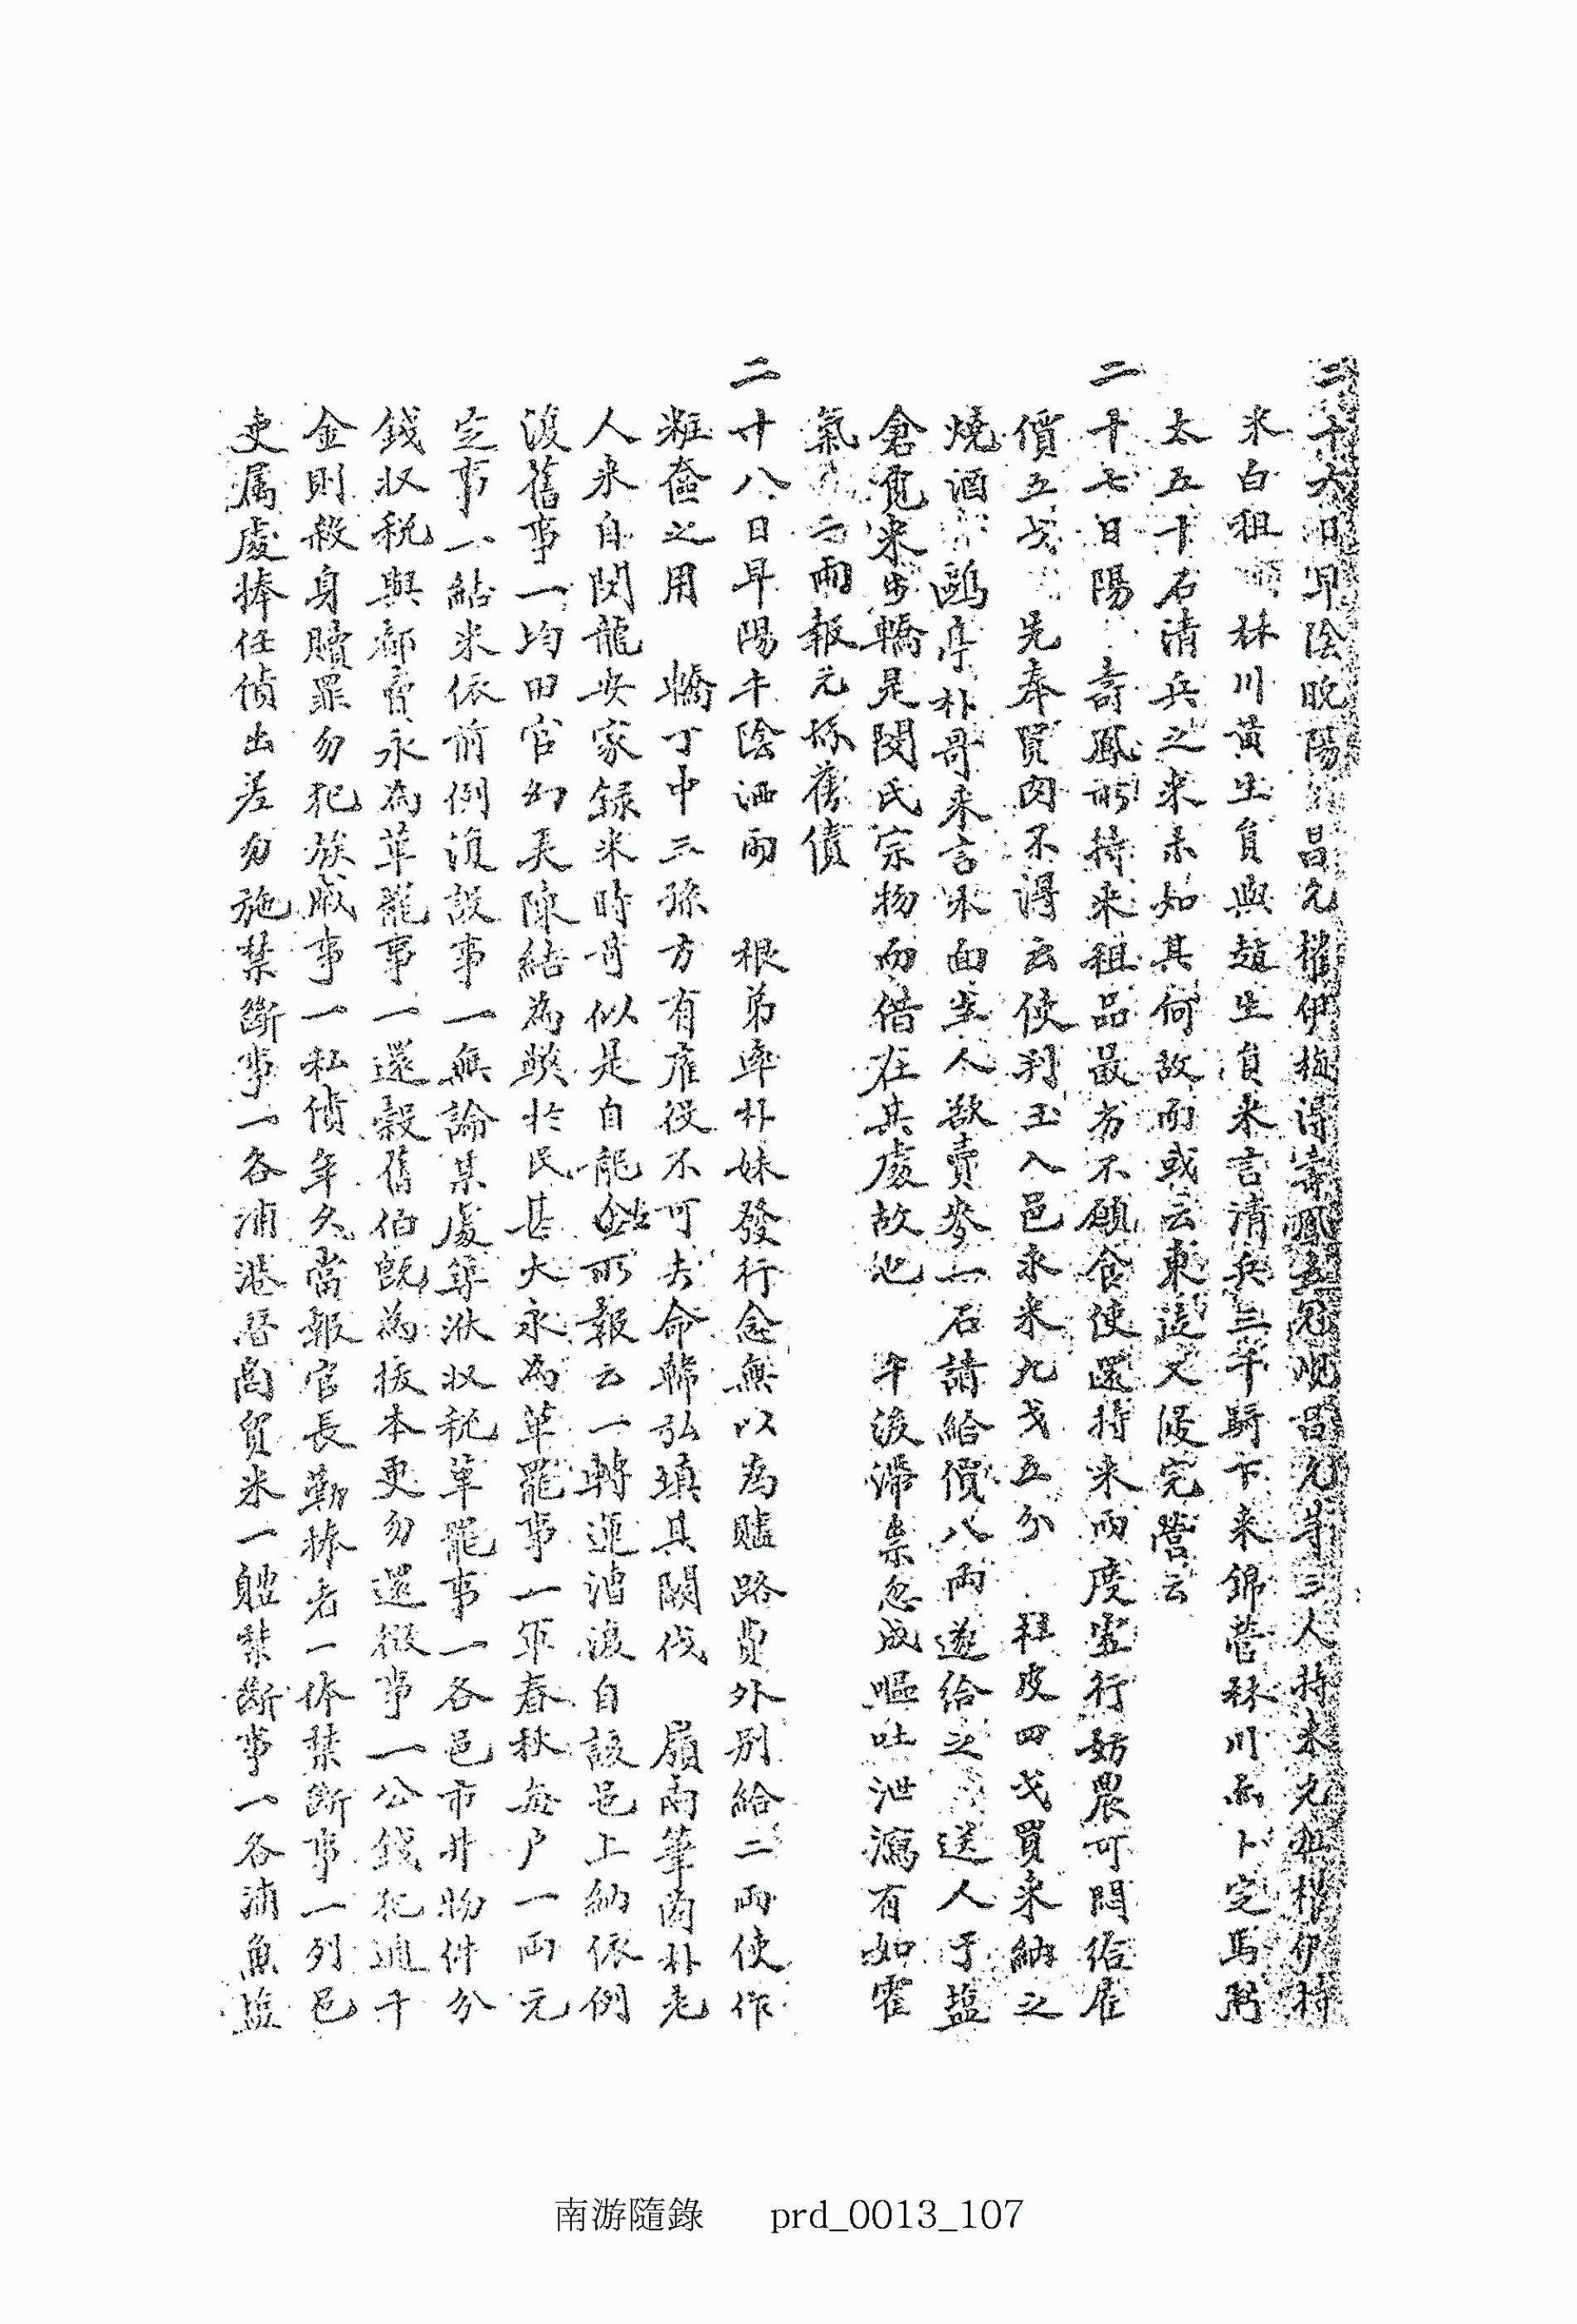 二十六日早陰晩陽 昌允 伊 得寄鳳 允 昌允等三人持来允 伊持
米白租 林川黃生員與趙生員来言清兵三千騎下来錦營林川 卜定馬
太五十石清兵之来未知其何故而或云東 又侵完營云
二十七日陽 壽鳳所持来租品最劣不願食使還持来而度 行妨農可悶給雇
價五戔 先奉買肉不得云使判玉入邑求来九戔五分 杜皮四戔買来納之
燒酒 鷗亭朴哥来言水面 人欲賣麥一石請給價八兩遂給之 送人于塩
倉覓来步轎是閔氏宗物而借在其處故也 午後滯祟忽成嘔吐泄瀉有如霍
氣 雨報元孫舊債
二十八日早陽午陰洒雨 根弟率朴妹發行念無以為贐路費外別給二兩使作
粧奩之用 轎丁中三孫方有雇役不可去命韓弘瑱其闕伐 扇兩筆商朴老
人来自閔龍安家録来時奇似是自龍 所報云一轉運漕後自該邑上納依例
復舊事一均田官幻弄陳結為瘼於民甚大永為革罷事一年春秋每户一兩元
定事一結米依前例復設事一無論某處筭洑收税革罷事一各邑市井物件分
錢收税與都賈永為革罷事一還穀舊伯旣為拔本更勿還徵事一公錢犯逋千
金則殺身贖罪勿犯族戚事一私債年久當報官長勒捧者一体禁断事一列邑
吏属處捧任債出差勿施禁斷事一各浦港潛商貿米一軆禁斷事一各浦魚塩
南游隨錄 prd_0013_107